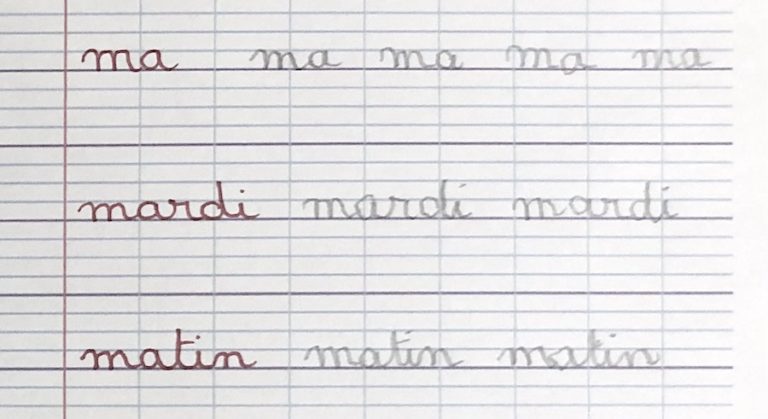 ma ma ma ma ma
mardi mardi mardi
matin matin matin